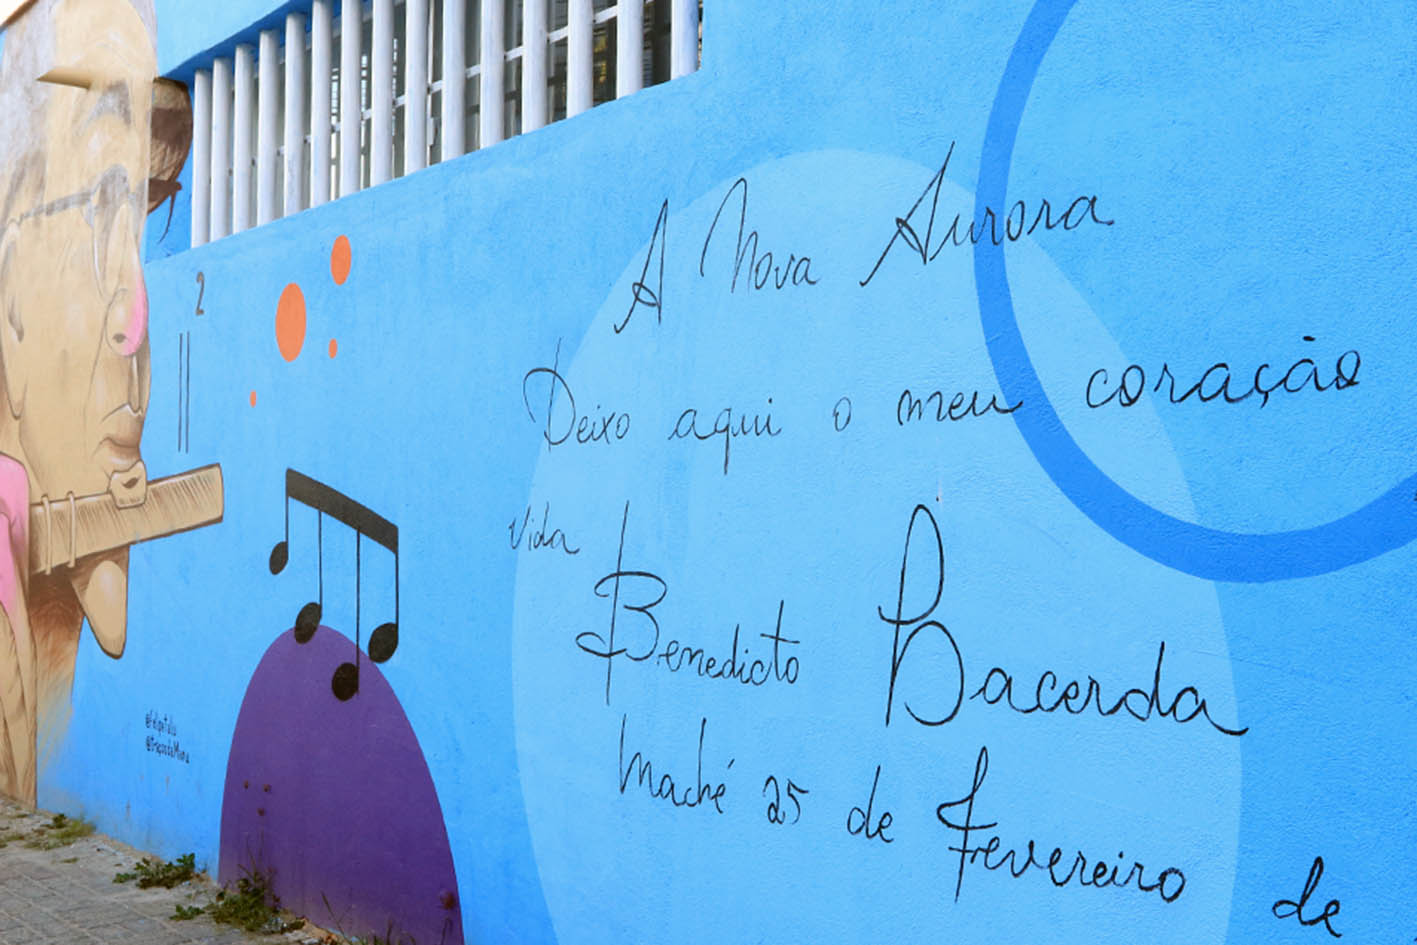 A Nova Aurora
Deixo aqui o meu coração
Vida
Benedicto Lacerda
Maché 25 de Fevereiro de
2